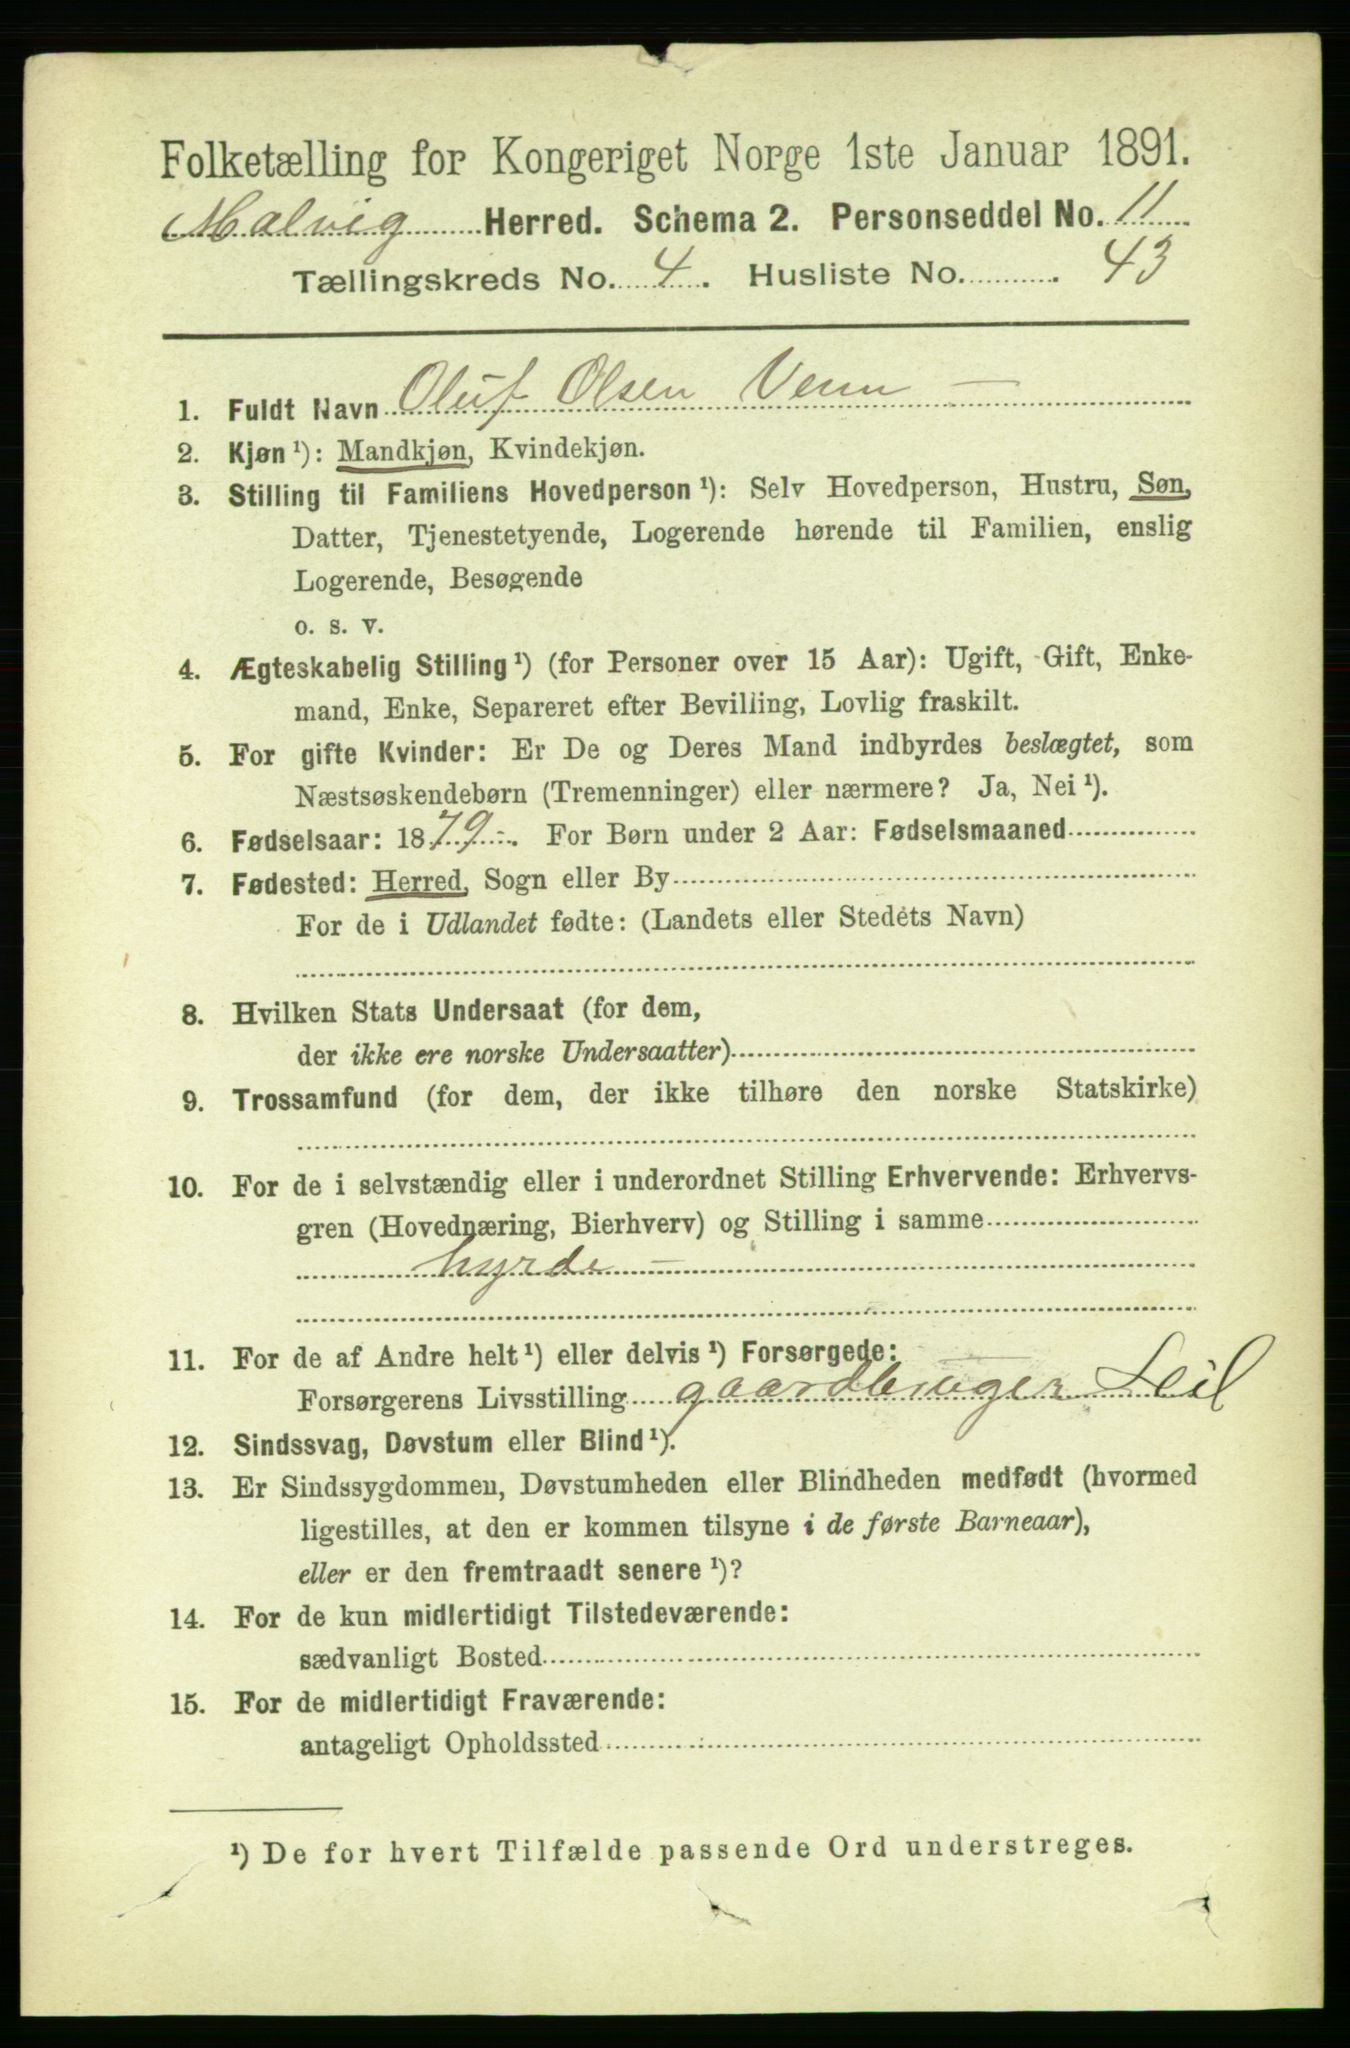 Folketælling for Kongeriget Norge 1ste Januar 1891.
Malvig Herred. Schema 2. Personseddel No. 11
Tællingskreds No. 4. Husliste No. 43
1. Fuldt Navn Oluf Olsen Venn —
2. Kjøn ¹): Mandkjøn, Kvindekjøn.
3. Stilling til Familiens Hovedperson ¹): Selv Hovedperson, Hustru, Søn,
Datter, Tjenestetyende, Logerende hørende til Familien, enslig
Logerende, Besøgende
o. s. v.
4. Ægteskabelig Stilling ¹) (for Personer over 15 Aar): Ugift, Gift, Enke-
mand, Enke, Separeret efter Bevilling, Lovlig fraskilt.
5. For gifte Kvinder: Er De og Deres Mand indbyrdes beslægtet, som
Næstsøskendebørn (Tremenninger) eller nærmere? Ja, Nei ¹).
6. Fødselsaar: 1879. For Børn under 2 Aar: Fødselsmaaned
7. Fødested: Herred, Sogn eller By
For de i Udlandet fødte: (Landets eller Stedets Navn)
8. Hvilken Stats Undersaat (for dem,
der ikke ere norske Undersaatter)
9. Trossamfund (for dem, der ikke tilhøre den norske Statskirke)
10. For de i selvstændig eller i underordnet Stilling Erhvervende: Erhvervs-
gren (Hovednæring, Bierhverv) og Stilling i samme
hyrde —
11. For de af Andre helt ¹) eller delvis ¹) Forsørgede:
Forsørgerens Livsstilling gaardbruger Leil
12. Sindssvag, Døvstum eller Blind ¹).
13. Er Sindssygdommen, Døvstumheden eller Blindheden medfødt (hvormed
ligestilles, at den er kommen tilsyne i de første Barneaar),
eller er den fremtraadt senere ¹)?
14. For de kun midlertidigt Tilstedeværende:
sædvanligt Bosted
15. For de midlertidigt Fraværende:
antageligt Opholdssted
¹) De for hvert Tilfælde passende Ord understreges.